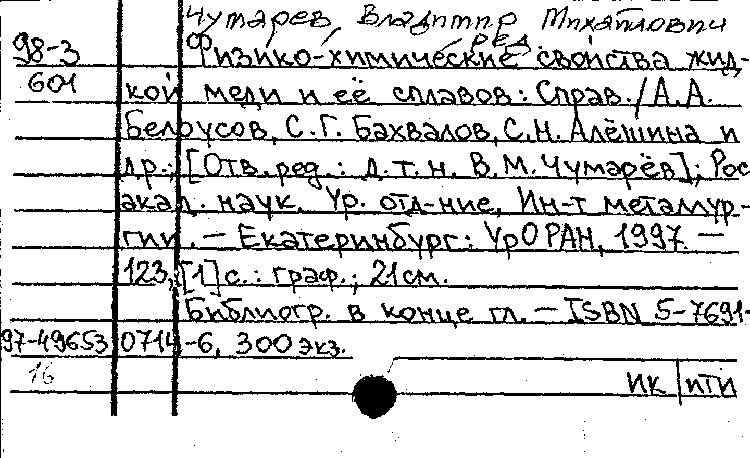 Чумарев, Владимир Михайлович
ред
98-3 Физико-химические свойства жид-
601 кой меди и её сплавов: Справ./А.А.
Белоусов, С.Г. Бахвалов, С.Н. Алёшина и
др.; [Отв. ред.: д.т.н. В.М. Чумарёв]; Рос
акад. наук. Ур. отд-ние, Ин-т металлур-
гии. — Екатеринбург: УрО РАН, 1997. —
123, [1] с.: граф.; 21 см.
Библиогр. в конце гл. — ISBN 5-7691-
97-49653 0714-6, 300 экз.
16 ИК ПТИ